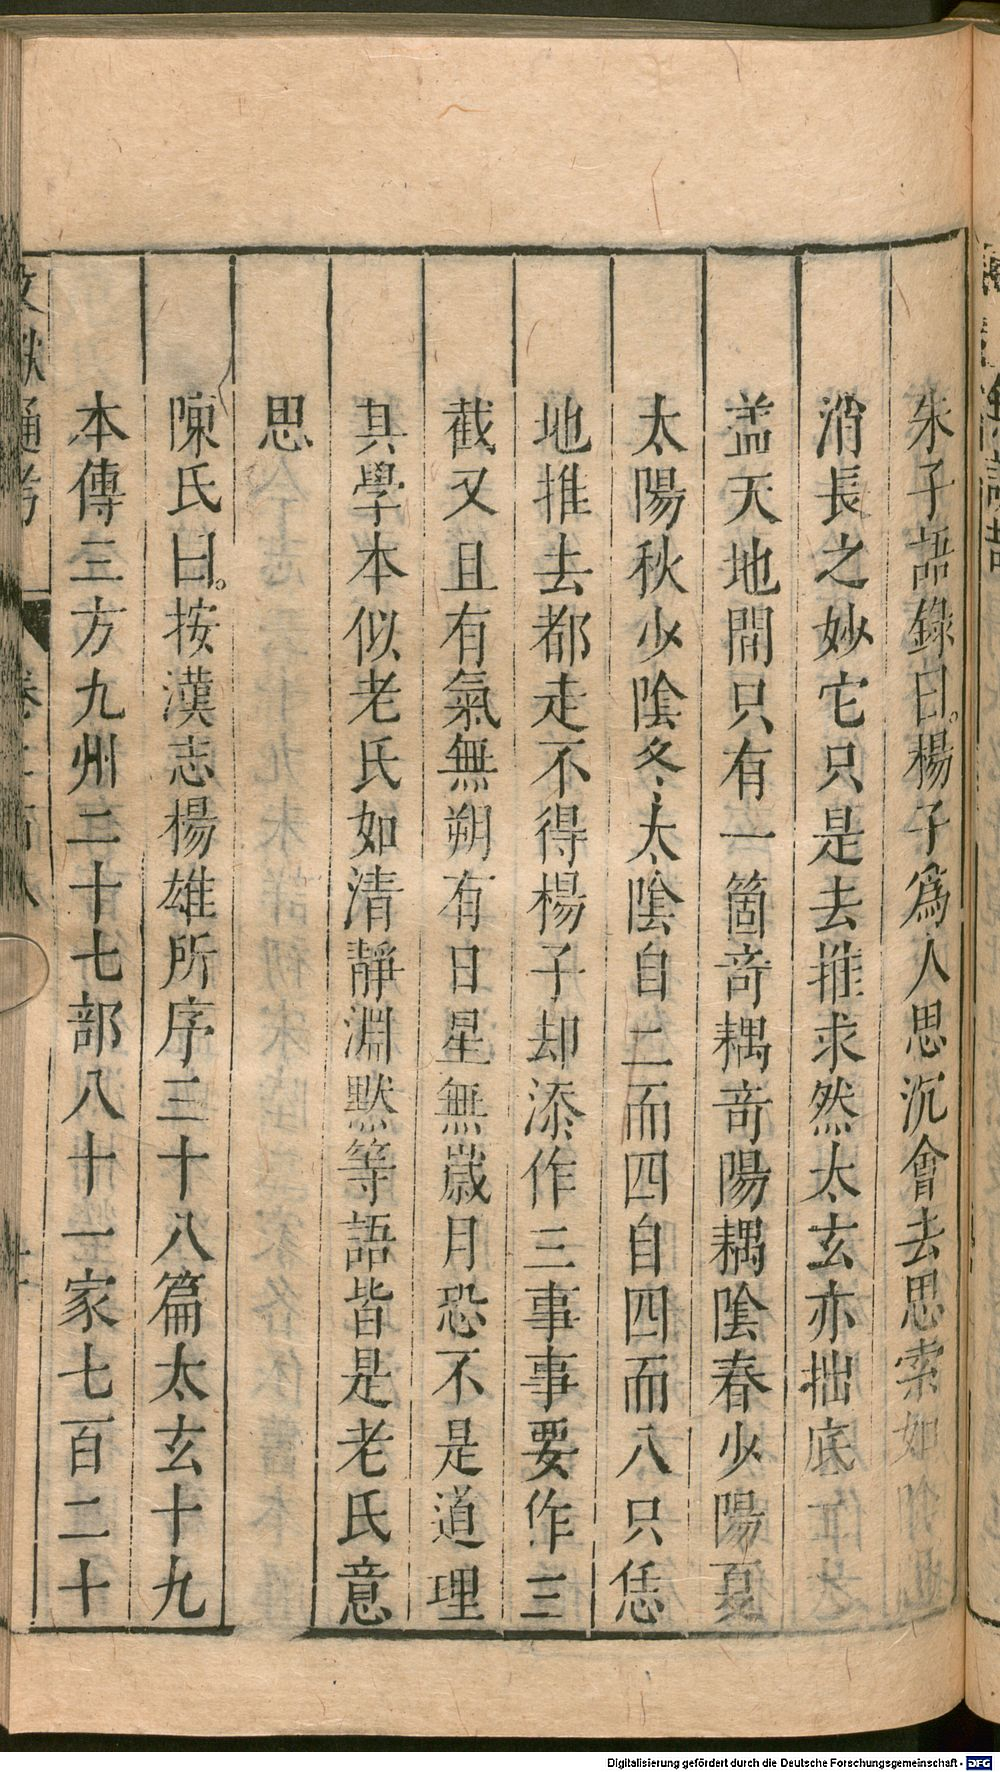 朱子語錄曰楊子爲人思沉會去思索如陰陽
消長之妙它只是去推求然太玄亦拙底工夫
盖天地間只有一箇竒耦竒陽耦陰春少陽夏
太陽秋少陰冬太陰自二而四自四而八只恁
地推去都走不得楊子却添作三事事要作三
截又且有氣無朔有日星無歲月恐不是道理
其學本似老氏如清靜淵默等語皆是老氏意
思
陳氏曰按漢志楊雄所序三十八篇太玄十九
本傳三方九州二十七部八十一家七百二十
文獻通考
Digitalisierung gefördert durch die Deutsche Forschungsgemeinschaft - DFG